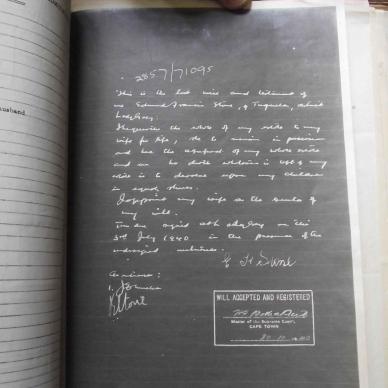 husband.
2857/71095
This is the last will and testament of
me Edmund Francis Stone, of Tugela, district
Ladysmith.
I bequeath the whole of my estate to my
wife for life, she to remain in possession
and have the usufruct of my whole estate
and on her death whatever is left of my
estate is to devolve upon my children
in equal shares.
I appoint my wife as the executor of
my will.
signed at on this
3rd July 1940 in the presence of the
undersigned witnesses.
E F Stone
As witness:
1.
WILL ACCEPTED AND REGISTERED
Master of the Supreme Court,
CAPE TOWN